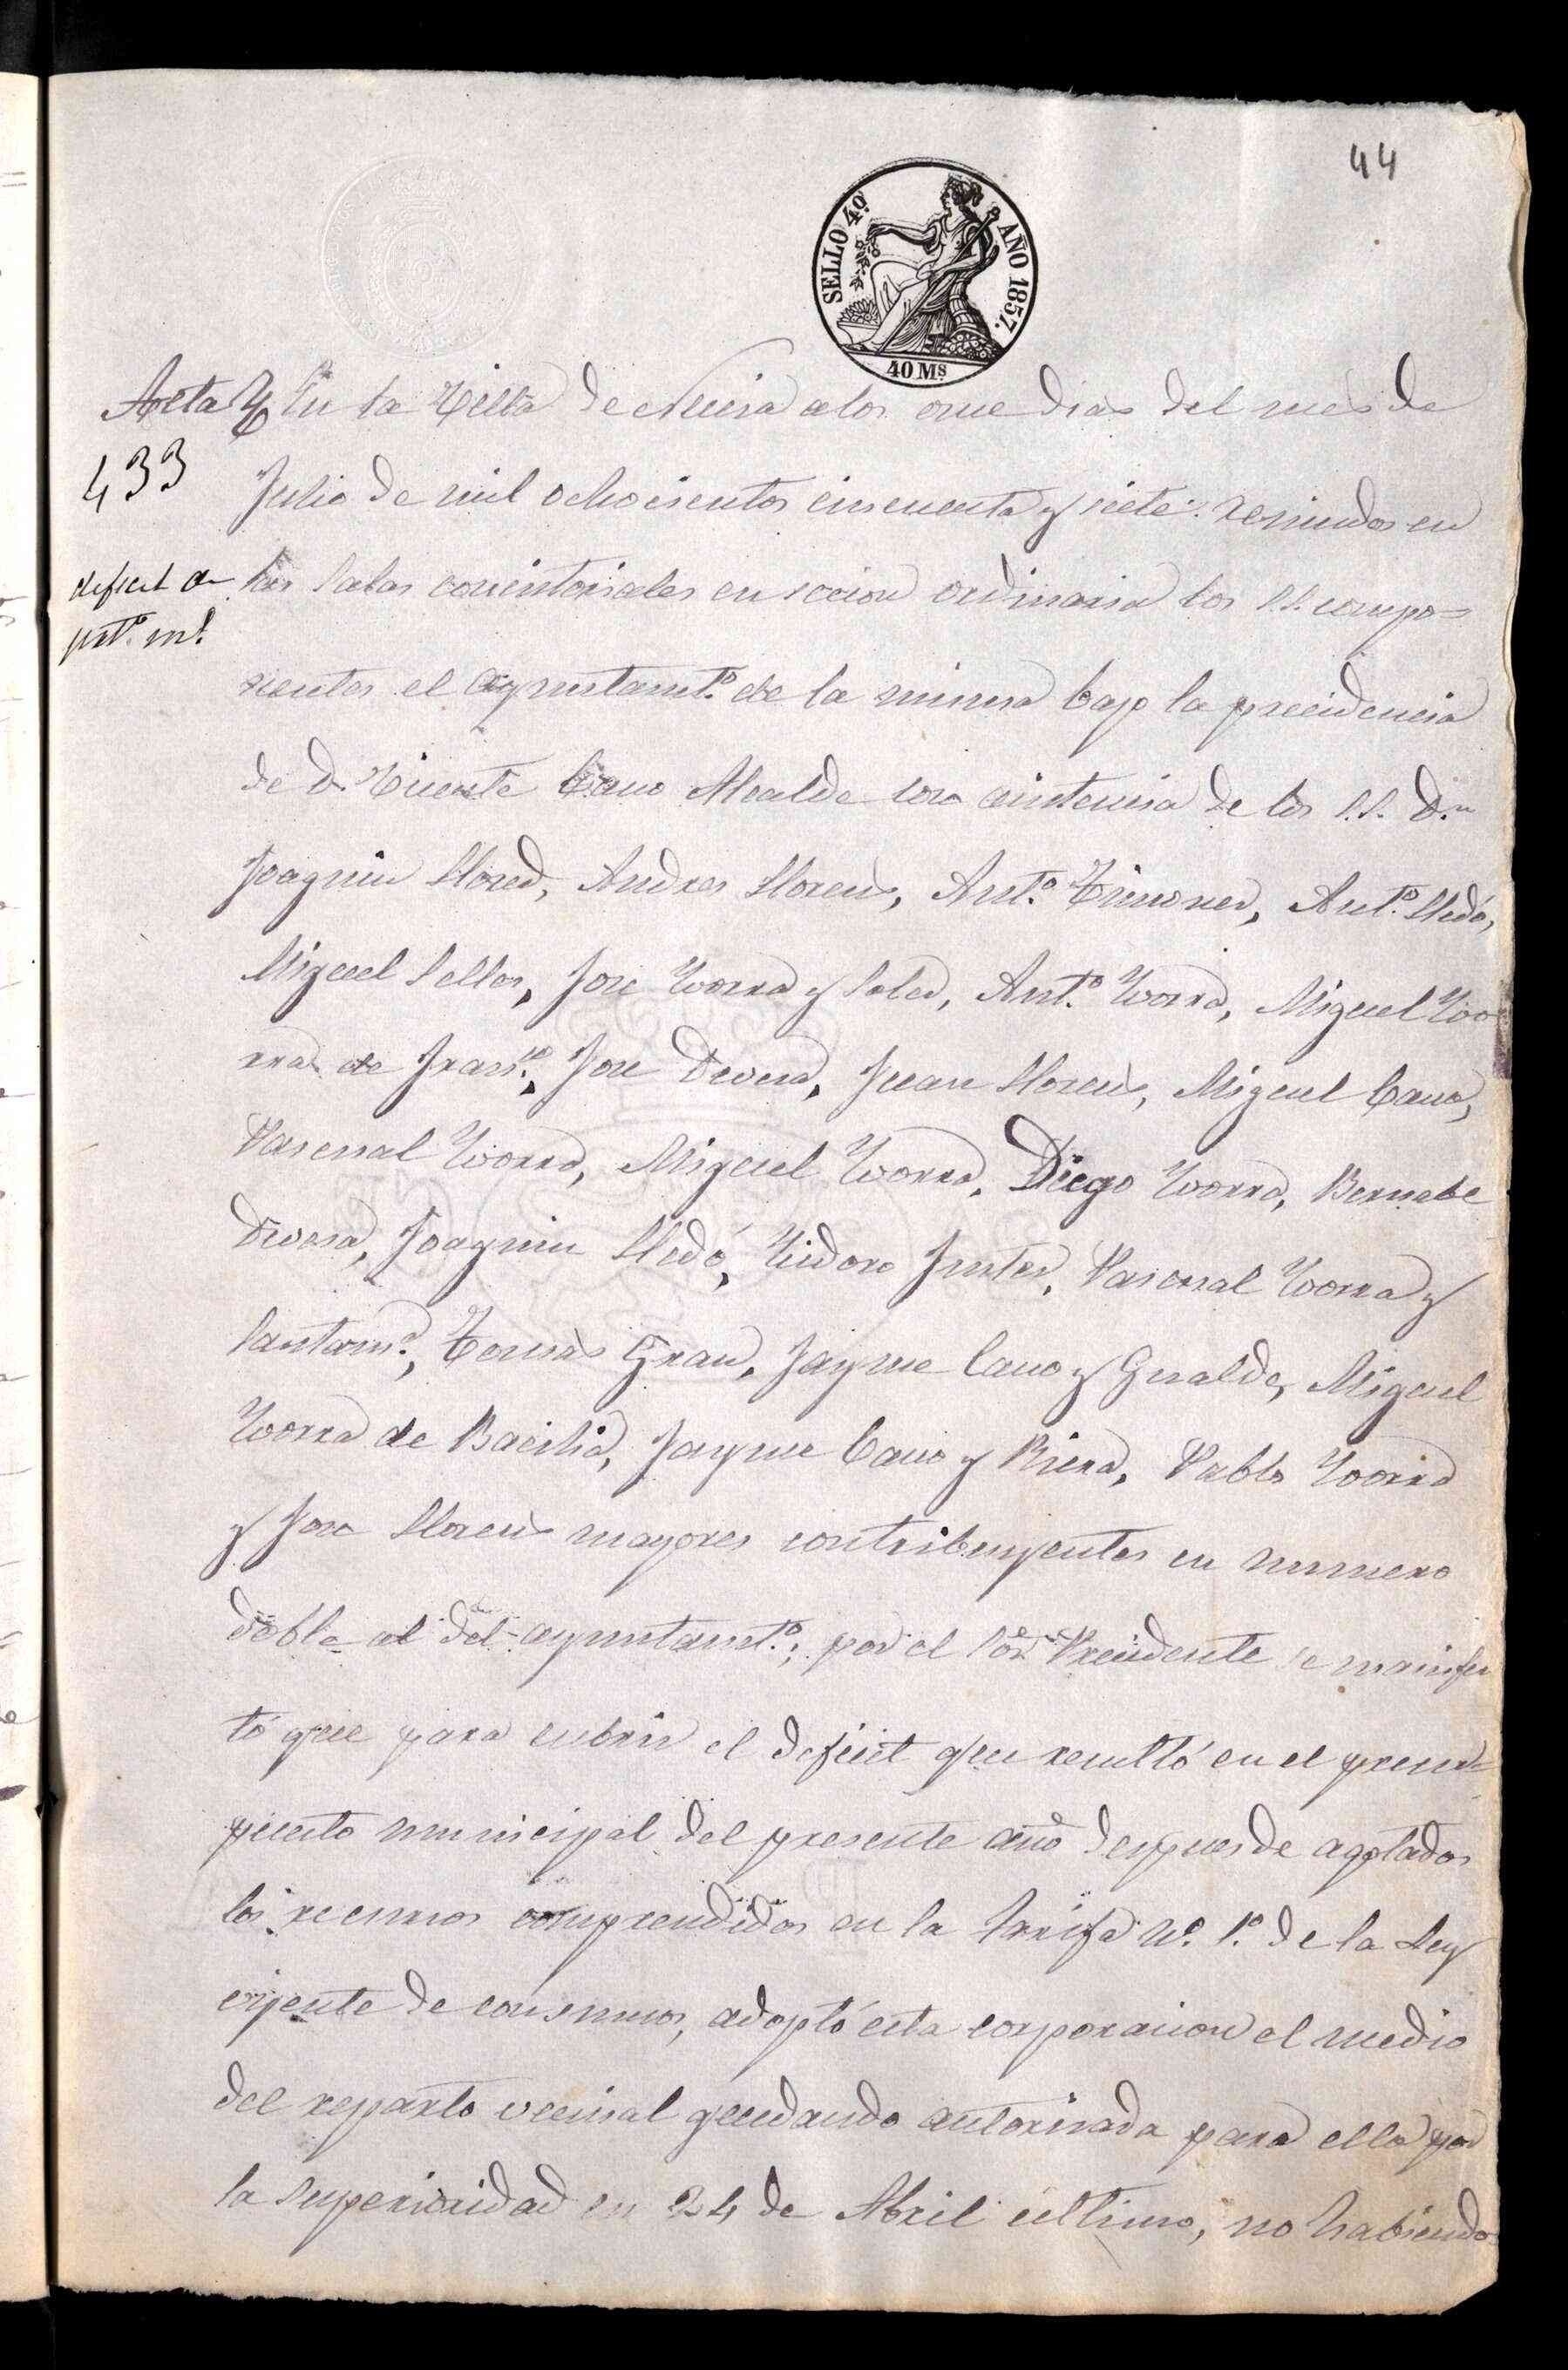 44
SELLO 4º AÑO 1857.
40 Ms
Acta En la Villa de Nucia a los onse dias del mes de
433
Julio de mil ochocientos cincuenta y siete: reunidos en
deficit de
las Salas concistoriales en secion ordinaria los S.S. compo=
pto. ml.
nentes el ayuntamto. de la misma bajo la precidencia
de D. Vicente Cano Alcalde con acistencia de los S.S. Dn.
Joaquin Llored, Andres Llorens, Anto. Ticuoner, Anto. Lledó,
Miguel Selles, Jose Yvorra y Soler, Anto. Yvorra, Miguel Yvo
rra de Franco., Jose Devesa, Juan Llorens, Miguel Cano,
Pascual Yvorra, Miguel Yvorra, Diego Yvorra, Bernabe
Devesa, Joaquin Lledó, Ysidoro Fuster, Pascual Yvorra y
Santama., Tomas Grau, Jayme Cano y Giralde, Miguel
Yvorra de Bacilia, Jayme Cano y Riera, Pablo Yvorra
y Jose Llorens mayores contribuyentes en numero
doble al del ayuntamto.; por el Sor. Presidente se manifes
tó que para cubrir el deficit que resultó en el presu=
puesto municipal del presente año despues de agotados
los recursos comprendidos en la tarrifa No. 1o. de la Ley
vijente de consumos, adoptó esta corporacion el medio
del reparto vecinal quedando autorisada para ello por
la superioridad en 24 de Abril ultimo, no habiendo